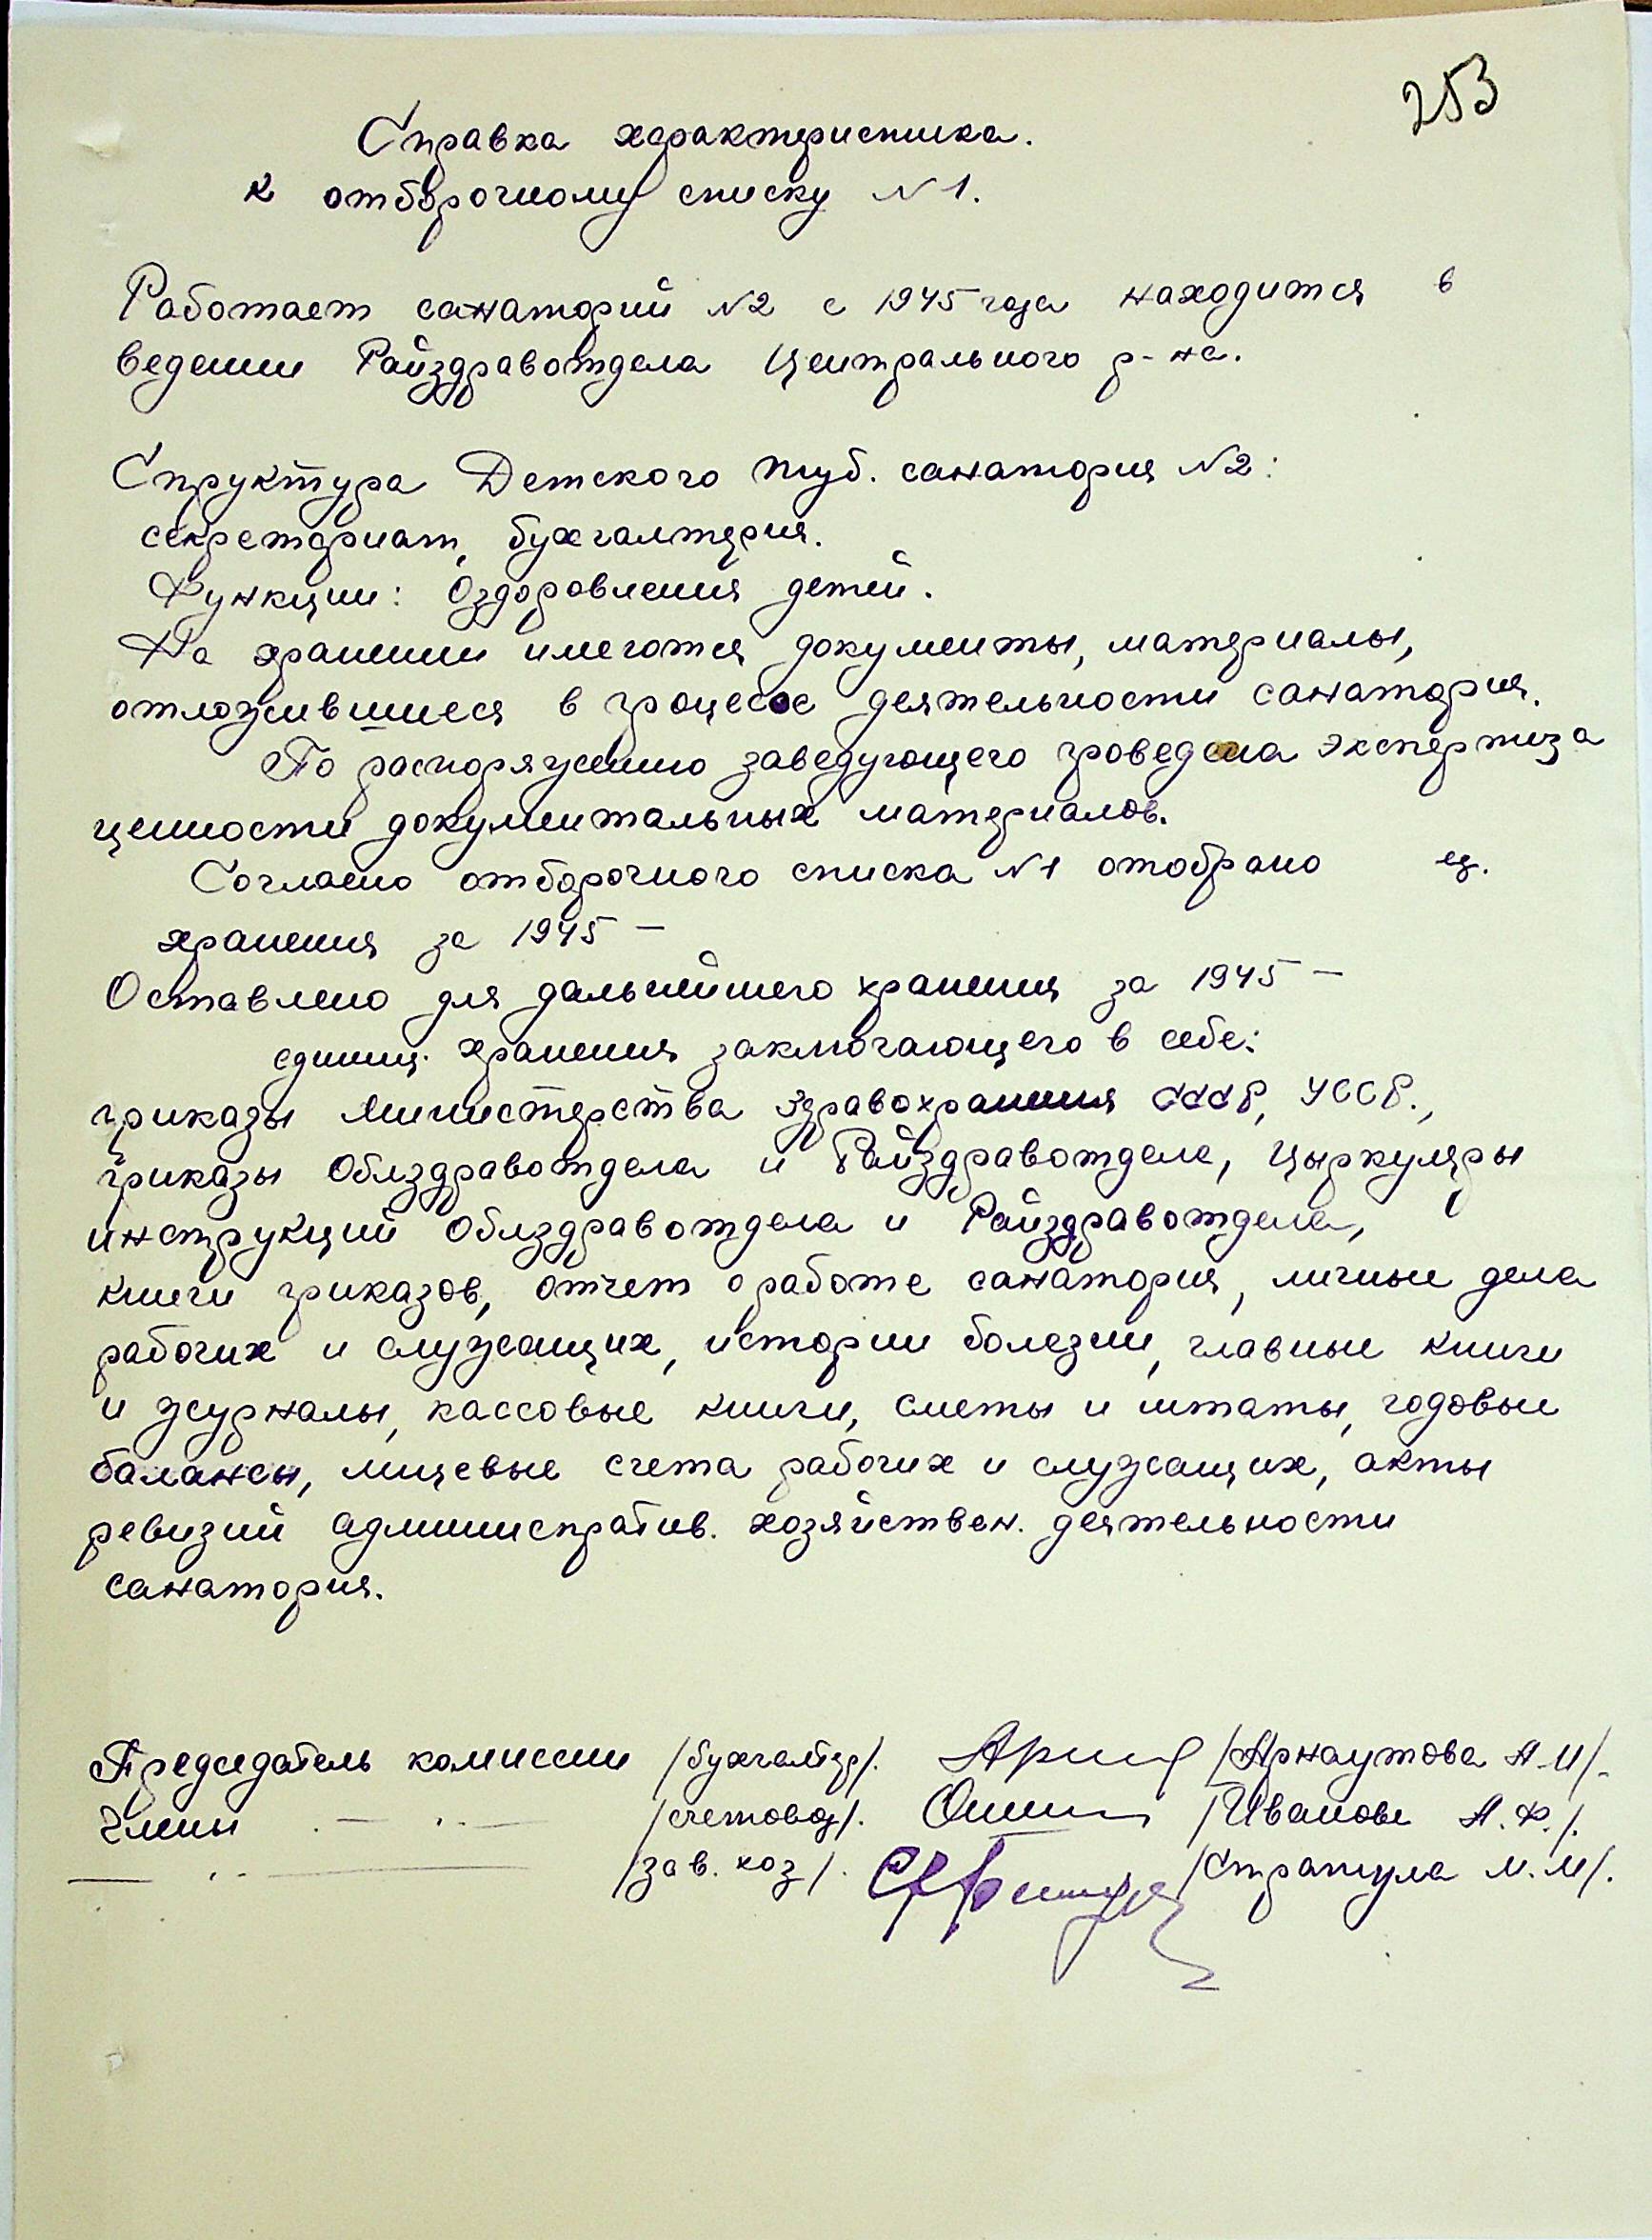 253
Справка характеристика.
к отборочному списку N 1.
Работает санаторий N2 с 1945 года находится в
ведении Райздравотдела Центрального р-на.
Структура Детского туб. санатория N2:
секретариат, бухгалтерия.
Функции: Оздоровления детей.
На хранении имеются документы, материалы,
отложившиеся в процессе деятельности санатория.
По распоряжению заведующего проведена экспертиза
ценности документальных материалов.
Согласно отборочного списка N1 отобрано ед.
хранения за 1945 –
Оставлено для дальнейшего хранения за 1945 –
единиц хранения заключающего в себе:
приказы Министерства Здравохранения СССР, УССР.,
приказы Облздравотдела и Райздравотдела, Цыркуляры
инструкций Облздравотдела и Райздравотдела,
книги приказов, отчет о работе санатория, личные дела
рабочих и служащих, истории болезни, главные книги
и журналы, кассовые книги, сметы и штаты, годовые
балансы, лицевые счета рабочих и служащих, акты
ревизий административ. хозяйствен. деятельности
санатория.
Председатель комиссии /бухгалтер/. /Арнаутова А.И/.
Члены — " — /счетовод/. /Иванова А.Ф./.
— " — /зав. хоз/. /Стратула М.М/.